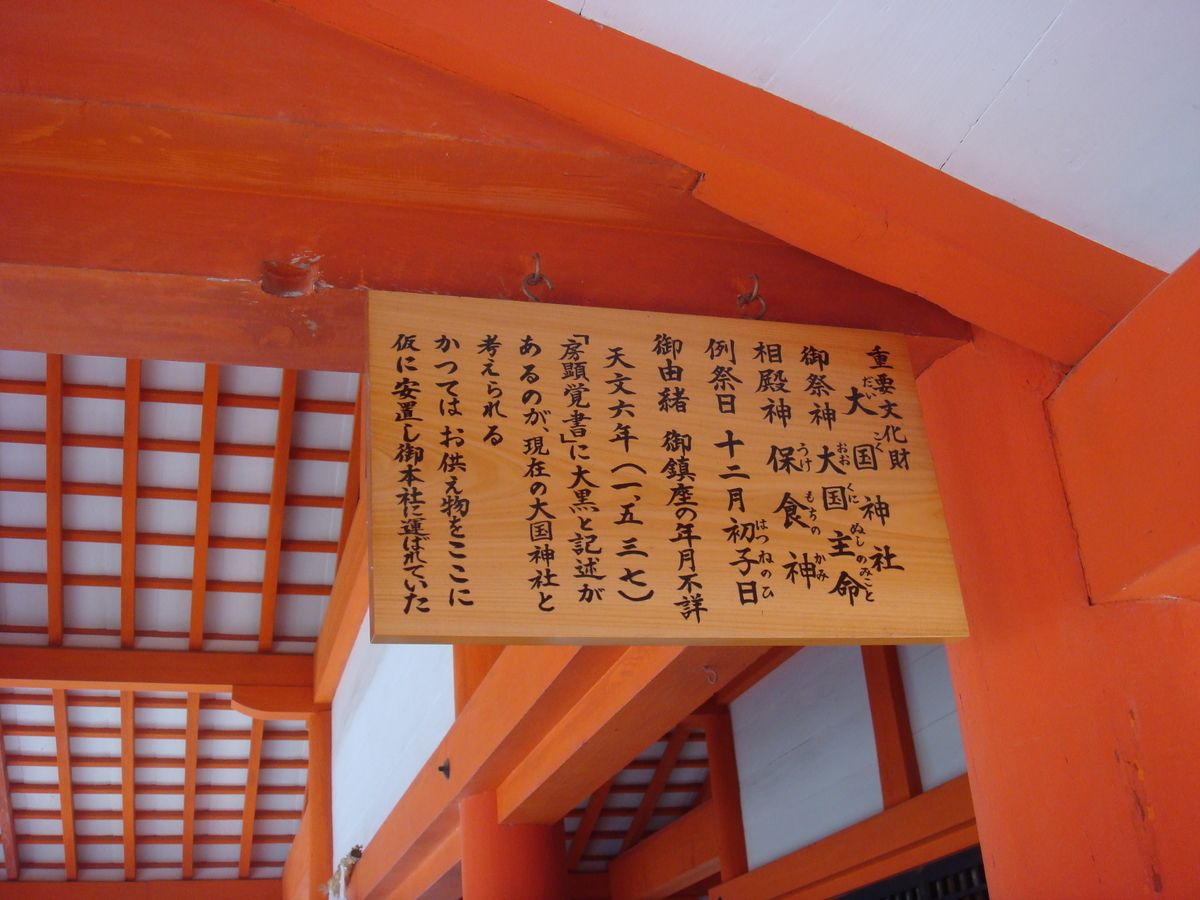 重要文化財
大国神社
だいこく
御祭神 大国主命
おおくにぬしのみこと
相殿神 保食神
うけもちのかみ
例祭日 十二月初子日
はつねのひ
御由緒 御鎮座の年月不詳
天文六年(一、五三七)
「房顕覚書」に大黒と記述が
あるのが、現在の大国神社と
考えられる
かつてはお供え物をここに
仮に安置し御本社に運ばれていた